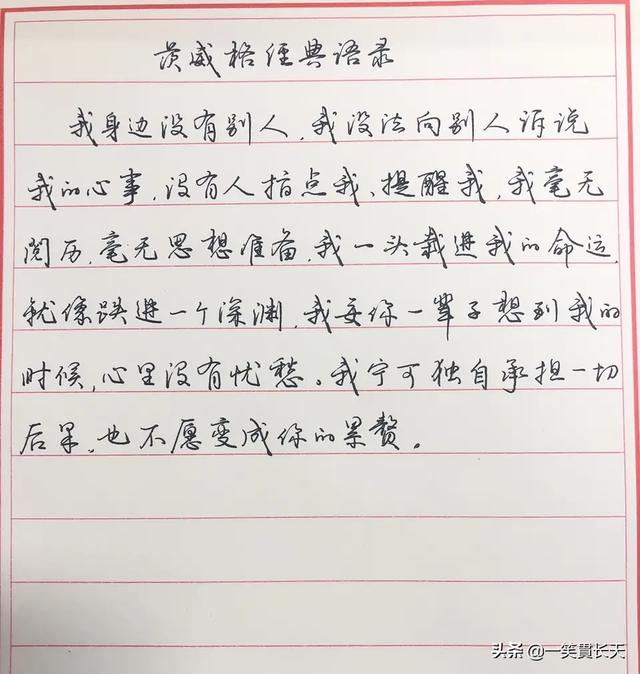 茨威格经典语录
我身边没有别人,我没法向别人诉说
我的心事,没有人指点我、提醒我,我毫无
阅历,毫无思想准备,我一头栽进我的命运,
就像跌进一个深渊,我要你一辈子想到我的
时候,心里没有忧愁。我宁可独自承担一切
后果,也不愿变成你的累赘。
头条 @一笑貫长天